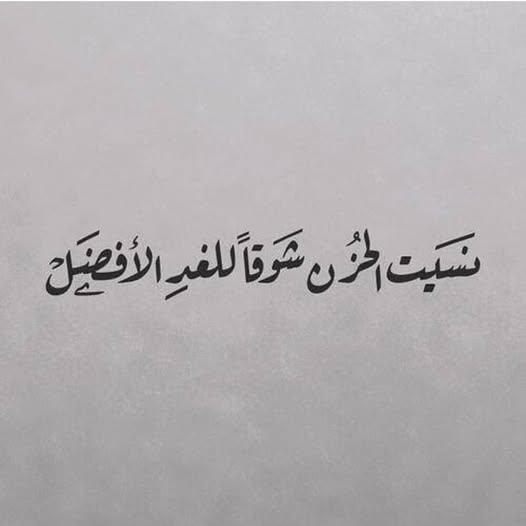 نسَيَت الحُزن شَوَقاً للغدِ الأفضَل